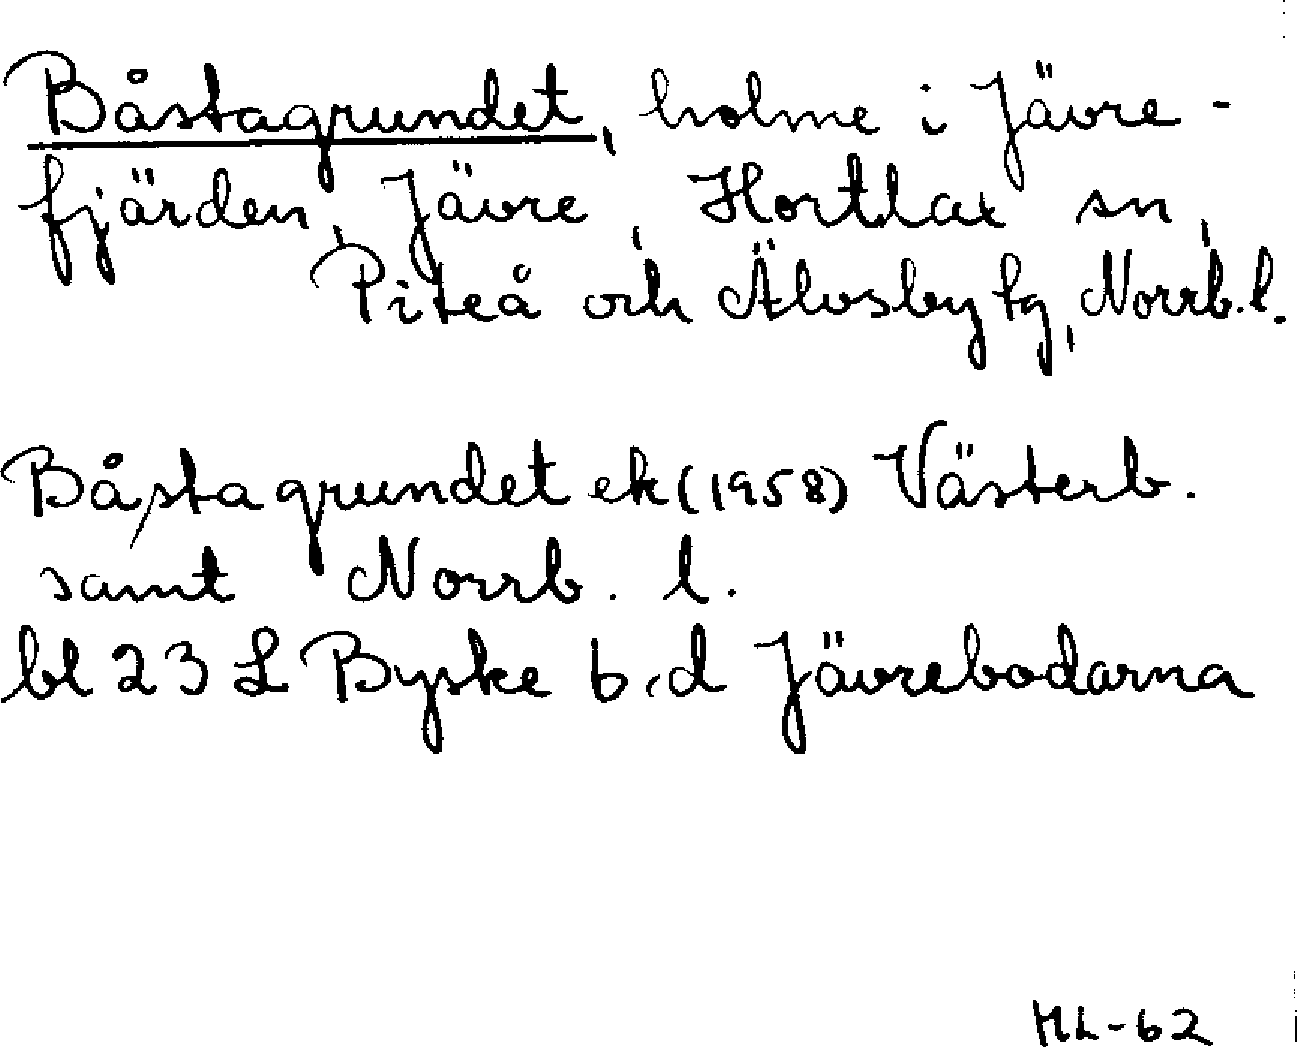 Båstagrundet, holme i Jävre-
fjärden, Jävre, Hortlax sn,
Piteå och Älvsby tg, Norrb. l.
Båstagrundet ek (1958) Västerb.
samt Norrb. l.
bl 23 L Byske b,d Jävrebodarna
ML-62